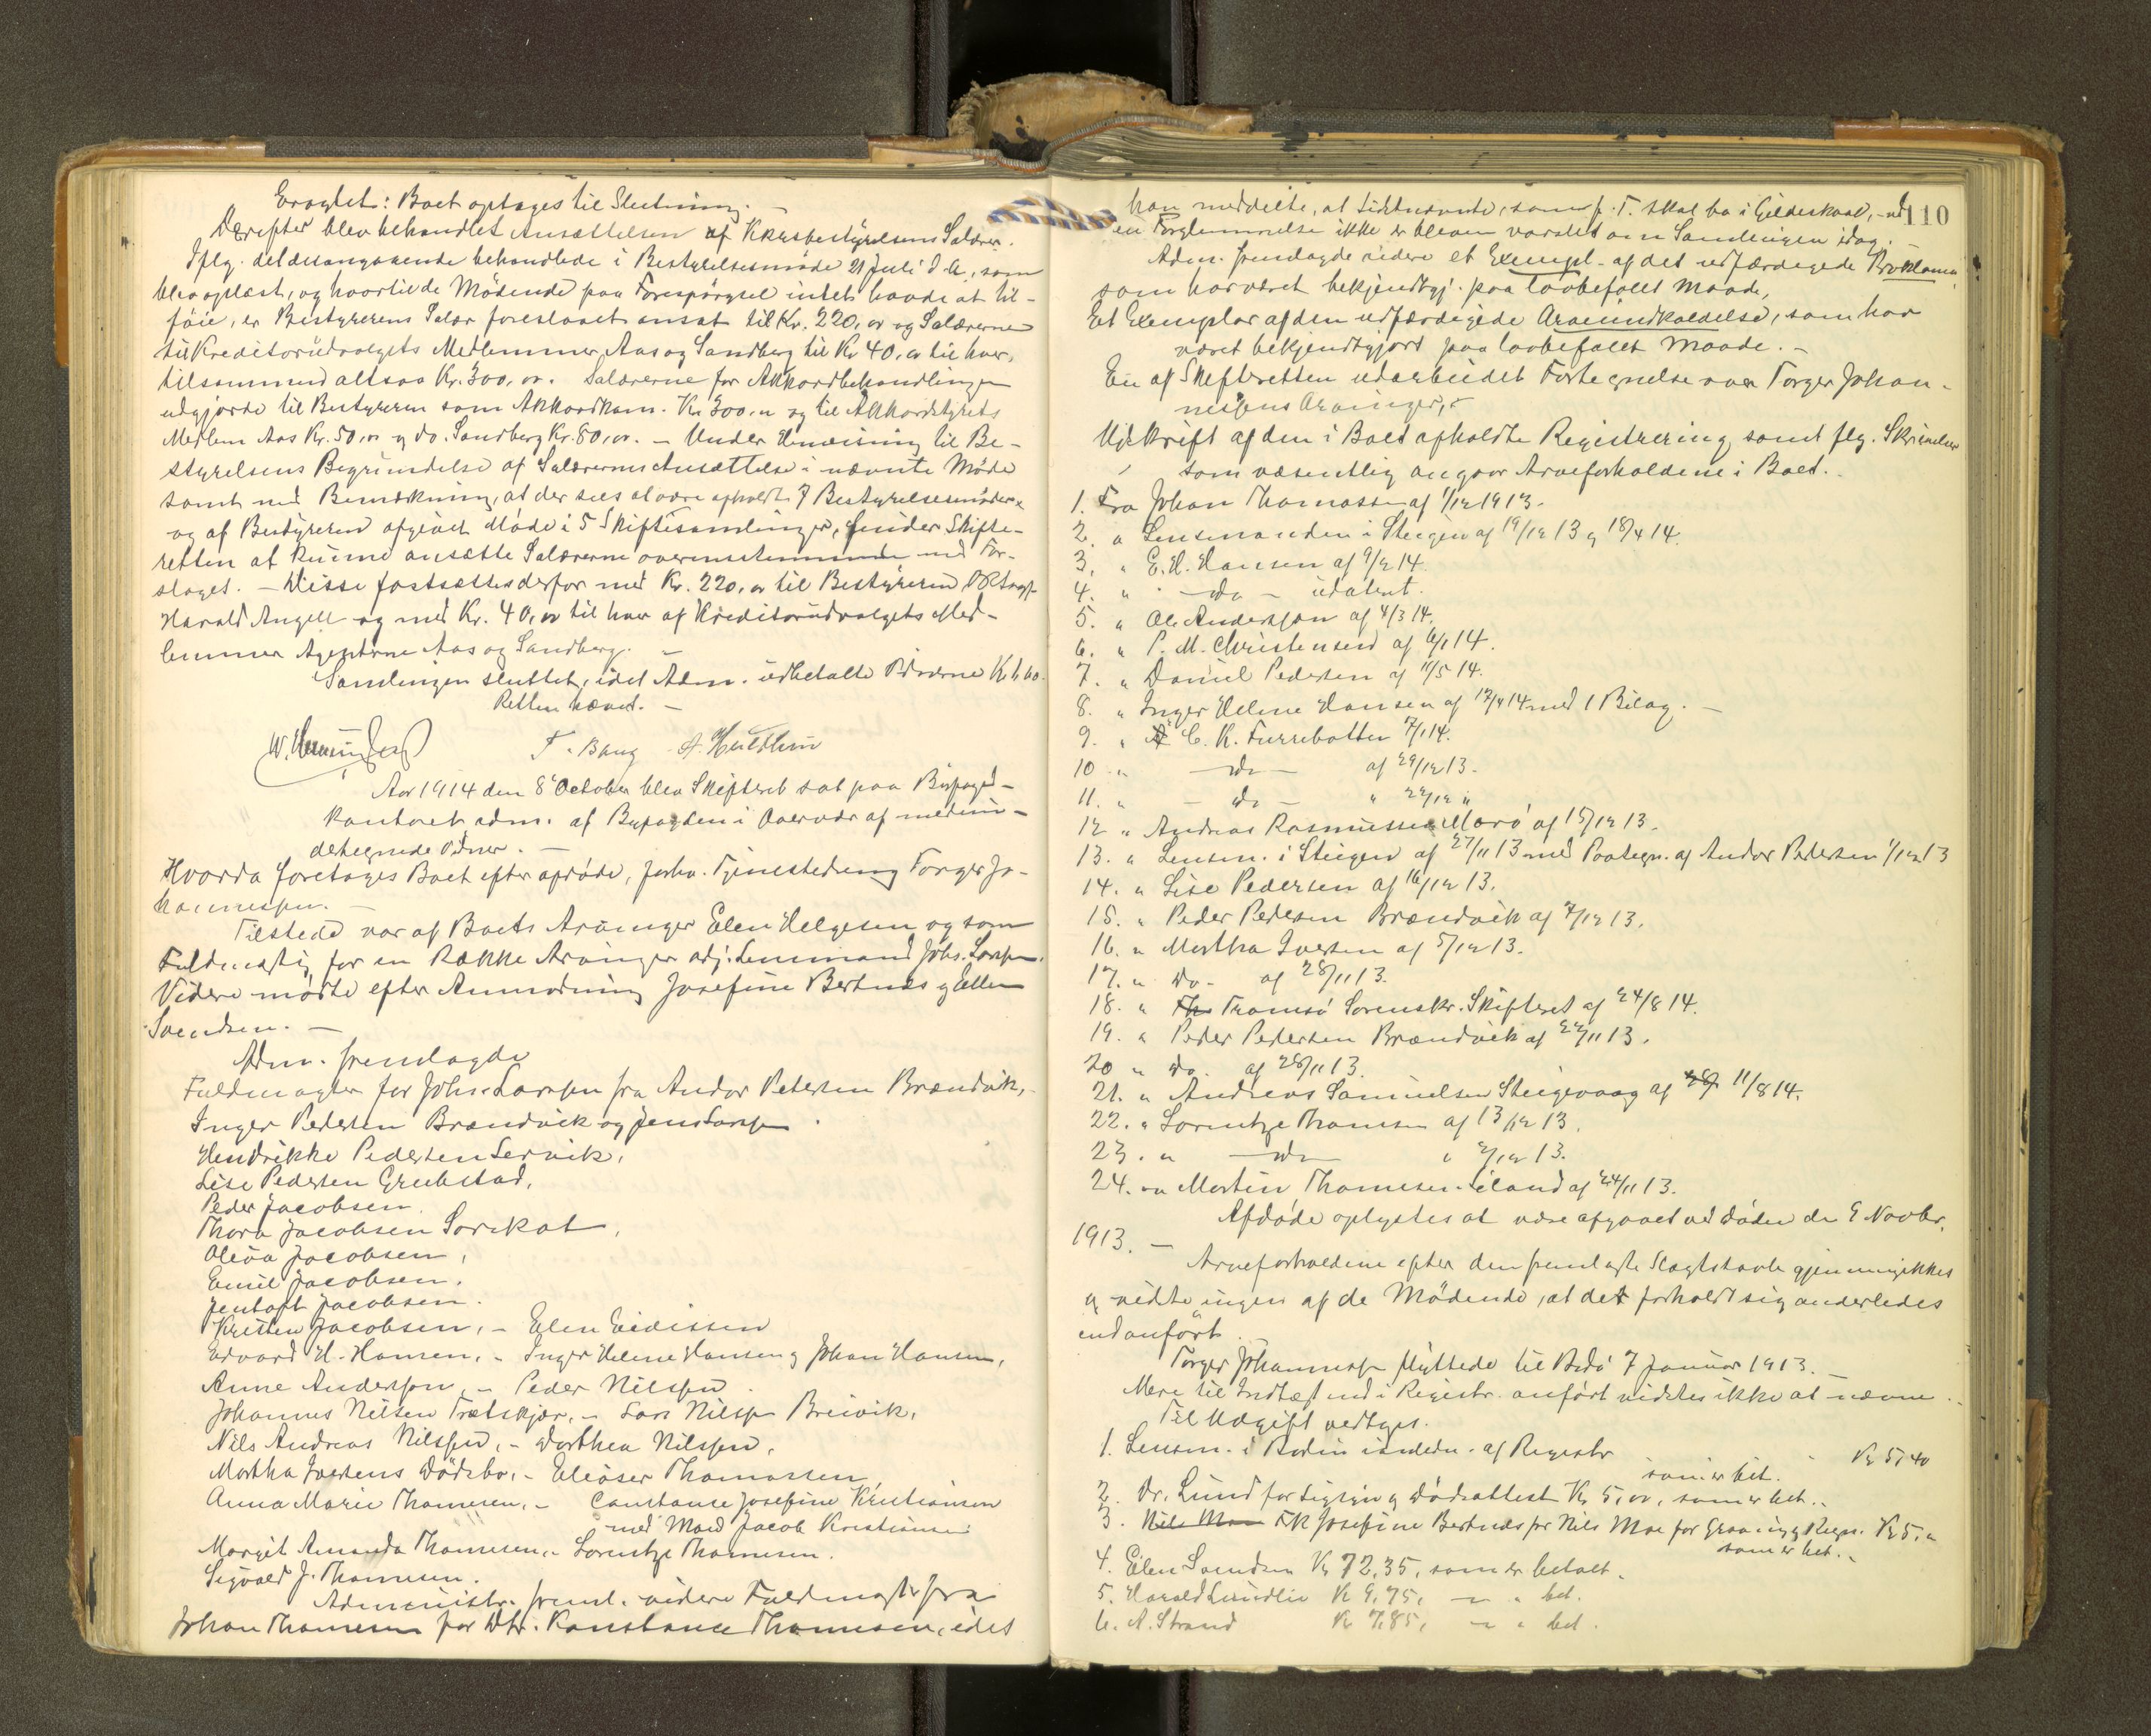 Eragtet: Boet optages til Slutning. -
Derefter blev behandlet Ansættelsen af Kkursbestyrelsens Salærer.
Iflg. det desangaaende behandlede i Bestyrelsesmøde 21 Juli d. A., som
blev oplæst, og hvortil de Mødende paa Forespørgsel intet havde at til-
føie, er Bestyrerens Salær foreslaaet ansat til Kr. 220,00 og Salærerne
til Kreditorudvalgets Medlemmer, Aas og Sandberg til Kr 40,00 til hver,
tilsammen altsaa Kr. 300,00. Salærerne for Akkordbehandlingen
udgjorde til Bestyreren som Akkordkom. Kr 300,00 og til Akkordstyrets
Medlem Aas Kr. 50,00 og do. Sandberg Kr. 80,00. - Under Henvisning til Be-
styrelsens Begrundelse af Salærernes Ansættelse i nævnte Møde
samt med Bemærkning, at der sees at være afholdt 7 Bestyrelsesmøder
og af Bestyreren afgivet Møde i 5 Skiftesamlinger, finder Skifte-
retten at kunne ansætte Salærerne overensstemmende med For-
slaget. - Disse fastsættes derfor med Kr. 220,00 til Bestyreren ORSagf.
Harald Angell og med Kr. 40,00 til hver af Kreditorudvalgets Med-
lemmer Agenterne Aas og Sandberg. -
Samlingen sluttet, idet Adm. udbetalte Vidnerne Kr 1.60.
Retten hævet. -
T. Bang A. Huldthin
Aar 1914 den 8de October blev Skifteret sat paa Byfoged-
kontoret adm. af Byfogden i Overvær af medun-
dertegnede Vidner. -
Hvorda foretages Boet efter afdøde, forhv. Tjenestedreng Torger Jo-
hannessen. -
Tilstede var af Boets Arvinger Elen Helgesen og som
Fuldmægtig for en Række Arvinger adj. Lensmand Johs. Larssen.
Videre mødte efter Anmodning Josefine Bertnes og Ellen
Svendsen. -
Adm. fremlagde
Fuldmagter for Johs. Larssen fra Andor Petersen Brændvik,
Inger Pedersen Brændvik og Jens Larssen.
Hendrikke Pedersen Servik,
Lise Pedersen Grubstad,
Peder Jacobsen.
Thora Jacobsen Sorskat,
Oliva Jacobsen,
Emil Jacobsen.
Jentoft Jacobsen.
Kristen Jacobsen, - Elen Eidissen
Edvard H. Hansen, - Inger Helene Hansen og Johan Hansen,
Anne Anderssen, - Peder Nilssen
Johannes Nilsen Trætskjær, - Lars Nilssen Breivik,
Nils Andreas Nilssen, - Dorthea Nilssen,
Martha Iversens Dødsbo, - Eliaser Thomassen,
Anna Marie Thomesen, - Constance Josefine Kristiansen
med Mand Jacob Kristiansen
Margit Amanda Thomesen, - Lorentze Thomesen.
Sigvald J. Thomesen.
Administr. freml. videre Fuldmagt fra
Johan Thomesen for Dtr. Konstance Thomesen, idet
110
han meddelte, at sidstnævnte, som f. T. skal bo i Gildeskaal, ved
en Forglemmelse ikke er bleven varslet om Samlingen idag. -
Adm. fremlagde videre et Exempl. af det udfærdigede Proklama
som har været bekjendtgj. paa lovbefalet Maade,
Et Exemplar af den udfærdigede Arveindkaldelse, som har
været bekjendtgjort paa lovbefalet Maade. -
En af Skifteretten udarbeidet Fortegnelse over Torger Johan-
nessens Arvinger, -
Udskrift af den i Boet afholdte Registrering samt flg. Skrivelser
som væsentlig angaar Arveforholdene i Boet. -
1. Fra Johan Thomassen af 1/12 1913.
2. " Lensmanden i Steigen af 19/12 13 og 18/4 14.
3. " E. H. Hansen af 9/2 14.
4. " - do - udatert.
5. " Ole Anderssen af 4/3 14.
6. " P. M. Christensen af 6/1 14.
7. " Daniel Pedersen af 11/5 14.
8. " Inger Helene Hansen af 17/4 14 med 1 Bilag. -
9. " C. K. Furrebotten 7/1 14.
10 " - do - af 29/12 13.
11. " - do - " 22/12 "
12 " Andreas Rasmussen Marø af 15/12 13.
13. " Lensm. i Steigen af 27/11 13 med Paategn. af Andor Pedersen 1/12 13
14. " Lise Pedersen af 16/12 13.
15. " Peder Pedersen Brændvik af 7/12 13.
16. " Martha Iversen af 5/12 13.
17. " do - af 28/11 13.
18. " Tromsø Sorenskr. Skifteret af 24/8 14.
19. " Peder Pedersen Brændvik af 22/11 13.
20 " do. af 28/11 13.
21. " Andreas Samuelsen Steigevaag af 11/8 14.
22. " Lorentze Thomsen af 13/12 13.
23. " - do - " 2/12 13.
24. " Martin Thomesen Øiland af 24/11 13.
Afdøde oplystes at være afgaaet ved Døden den 9 Novbr.
1913. -
Arveforholdene efter den fremlagte Slægtstavle gjennemgikkes
og vidste ingen af de Mødende, at det forholdt sig anderledes
end anført.
Torger Johannessen flyttede til Bodø 7 Januar 1913.
Mere til Indtægt end i Registr. anført vidstes ikke at nævne.
Til Udgift vedtoges.
1. Lensm. i Bodin i anledn. af Registr. Kr 5,40
som er bet.
2. Dr. Lund for Ligsyn og Dødsattest Kr 5,00, som er bet. -
3. Nils Moe Frk Josefine Bertnes for Nils Moe for Gravning og Regn. Kr 5,00
som er bet. -
4. Ellen Svendsen Kr 72,35, som er betalt.
5. Harald Lundlie Kr 9,75, - " - bet.
6. A. Strand Kr 7,85, - " - bet.